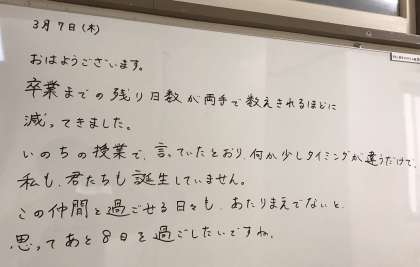 3月7日(木)
おはようございます。
卒業までの残り日数が両手で数えきれるほどに
減ってきました。
いのちの授業で、言っていたとおり、何か少しタイミングが違うだけで、
私も、君たちも誕生していません。
この仲間と過ごせる日々も、あたりまえでないと、
思ってあと8日を過ごしたいですね。